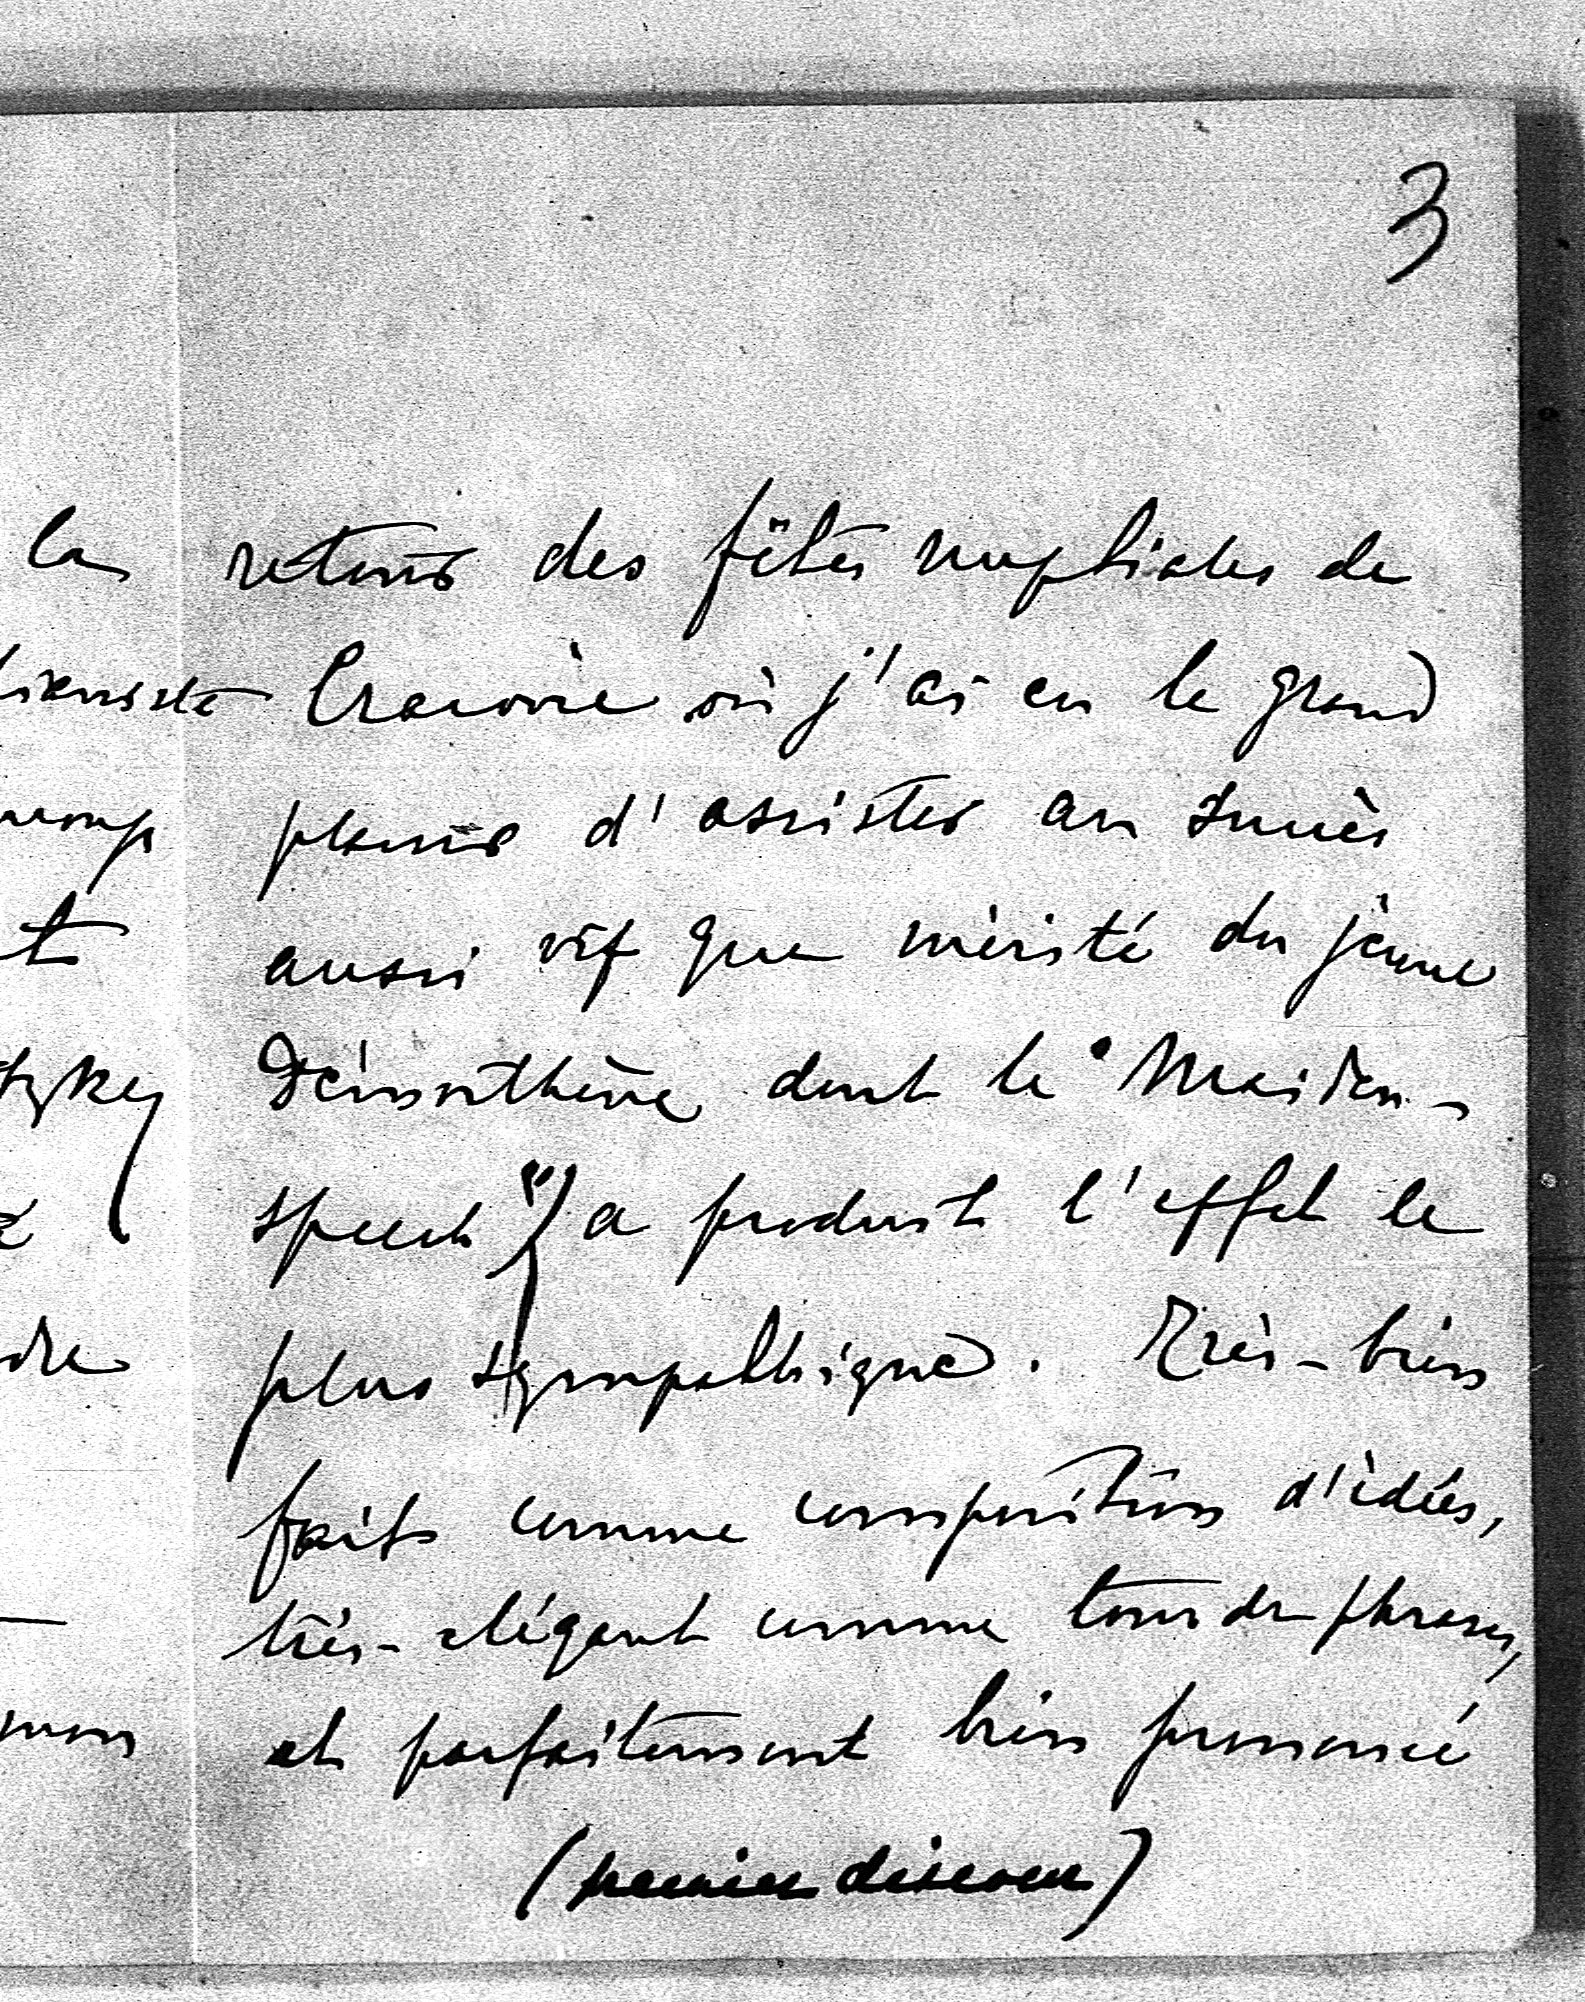 3
retour des fêtes nuptiales de
Cracovie où j'ai eu le grand
plaisir d'assister au succès
aussi vif que mérité du jeune
Démosthène dont le "Maiden-
speech" a produit l'effet le
plus sympathique. Très-bien
faits comme composition d'idées,
très-élégant comme tour de phrases,
et parfaitement bien prononcé
(premier discours)
la
mon